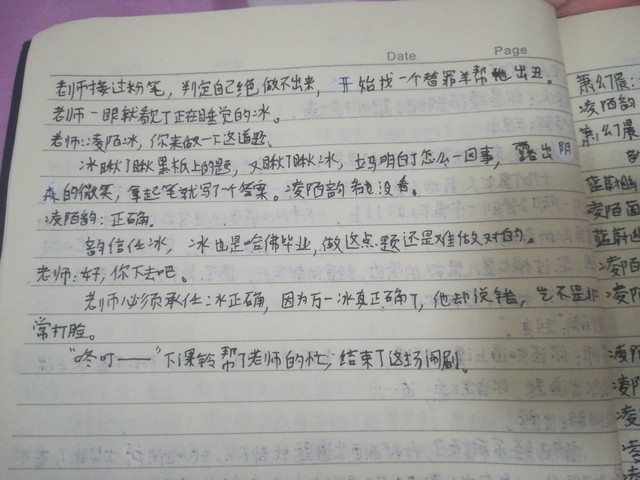 Date Page
老师接过粉笔，判定自己绝做不出来，开始找一个替罪羊帮他出丑。
老师一眼就看见了正在睡觉的冰。
老师：凌陌冰，你来做一下这道题。
冰瞅了瞅黑板上的题，又瞅了瞅冰，立马明白了怎么一回事，露出阴
森的微笑，拿起笔就写了个答案。凌陌韵都没看。
凌陌韵：正确。
韵信任冰，冰也是哈佛毕业，做这点题还是难做对的。
老师：好，你下去吧。
老师必须承任：冰正确，因为万一冰真正确了，他却说错，岂不是非
常打脸。
“咚叮——”下课铃帮了老师的忙，结束了这场闹剧。
萧幻晨：
凌陌韵
萧幻晨
蓝蔚幽
凌陌面
蓝蔚幽
凌陌
凌陌
凌陌
凌陌